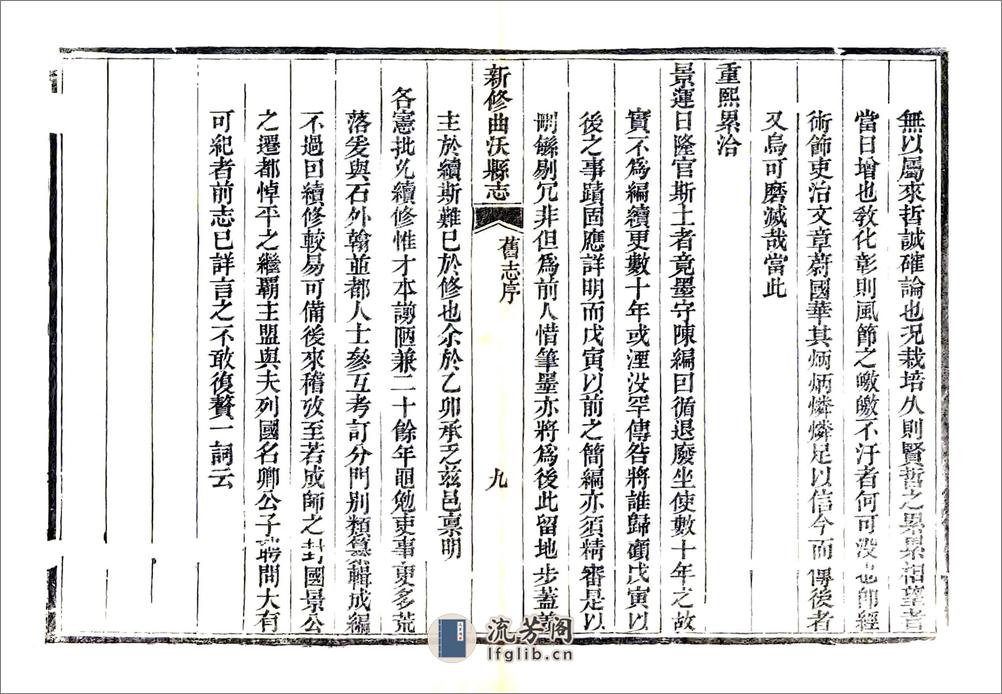 無以屬來哲誠確論也况栽培久則賢哲之累累相望者
當日增也教化彰則風節之皦皦不汙者何可没也卽經
術飾吏治文章蔚國華其炳炳燐燐足以信今而傳後者
又烏可磨滅哉當此
重熙累洽
景運日隆官斯土者竟墨守陳編因循退廢坐使數十年之故
實不爲編續更數十年或湮没罕傳咎將誰歸顧戊寅以
後之事蹟固應詳明而戊寅以前之簡編亦須精審是以
刪繇剔冗非但爲前人惜筆墨亦將爲後此留地步蓋
新修曲沃縣志
舊志序
九
主於續斯難已於修也余於乙卯承乏兹邑稟明
各憲批允續修惟才本謭陋兼二十餘年黽勉吏事更多荒
落爰與石外翰並都人士參互考訂分門别類纂輯成編
不過曰續修較易可備後來稽攷至若成師之封國景公
之遷都悼平之繼霸主盟與夫列國名卿公子聘問大有
可紀者前志已詳言之不敢復贅一詞云
流芳閣
lfglib.cn